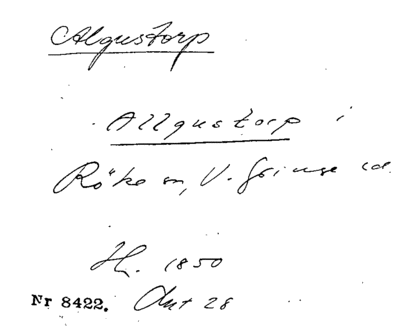 Algustorp
Allgustorp i
Röke sn, V. Göinge hd.
Hn. 1850
Nr 8422. Ant 28